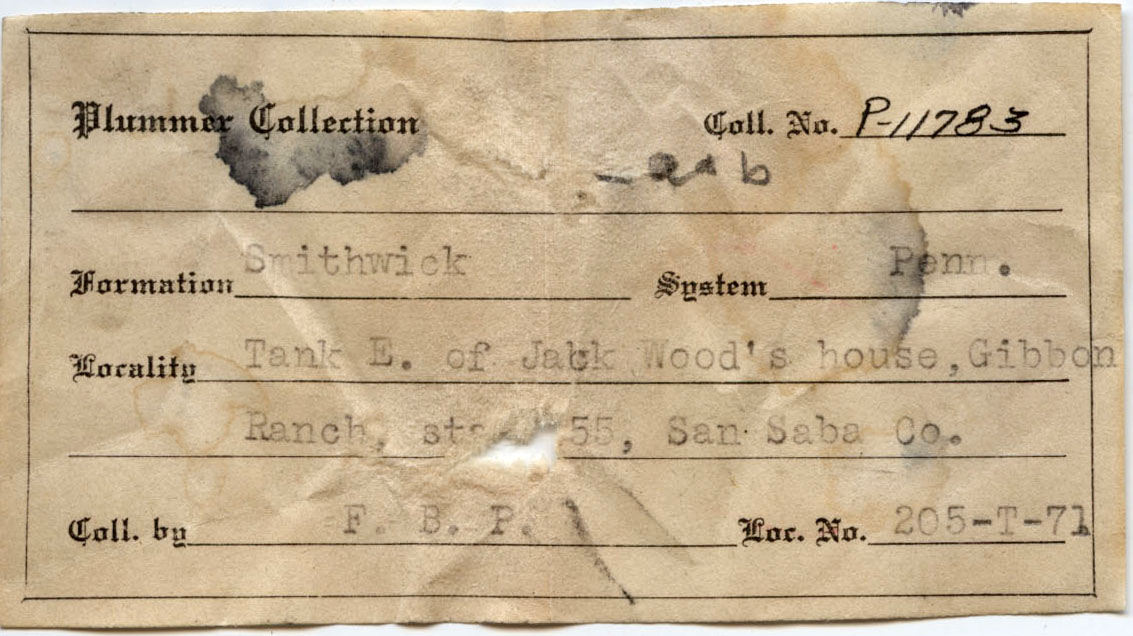 Plummer Collection Coll. No. P-11783
- a+b
Formation Smithwick System Penn.
Locality Tank E. of Jack Wood's house, Gibbon
Ranch, 55, San Saba Co.
Coll. by F. B. P. Loc. No. 205-T-71